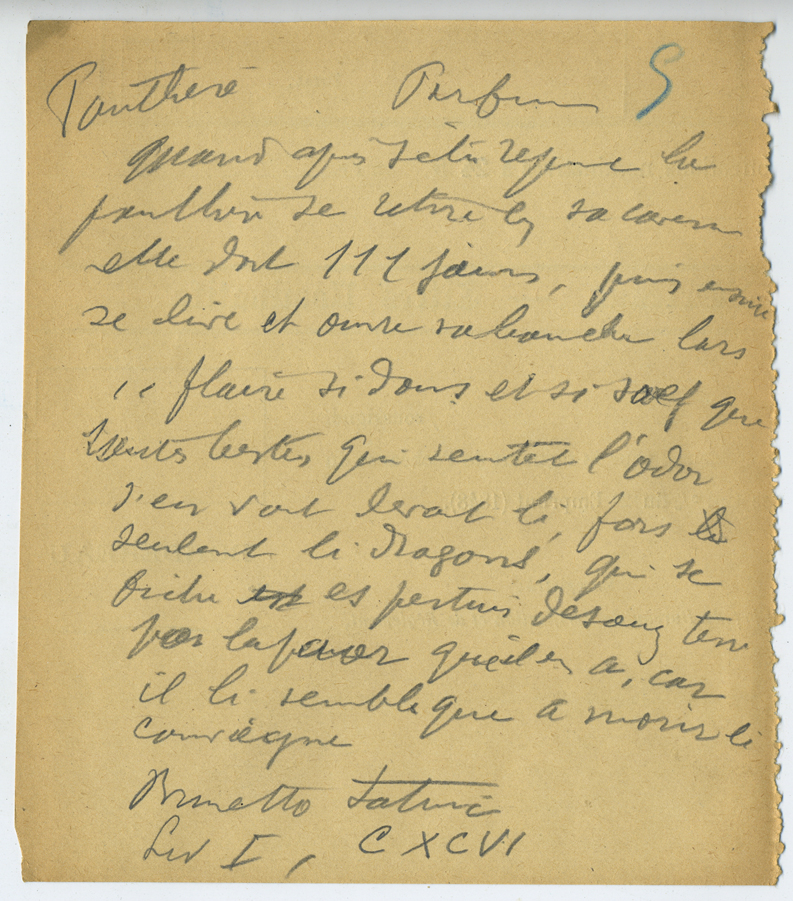 Panthère Parfum 9
quand après s'être repue la
panthère se retire en sa caverne
elle dort 111 jours, puis ensuite
se live et ouvre sa bouche lors
,, flaire si dous et si soef que
toutes bestes qui sentent l'odor
s'en vont devant li, fors
seulent li dragons, qui se
fiche es pertuis desouz terre
por la paor qu'il en a, car
il li semble que a morir li
conviegne
Brunetto Latini
Liv I, CXCVI